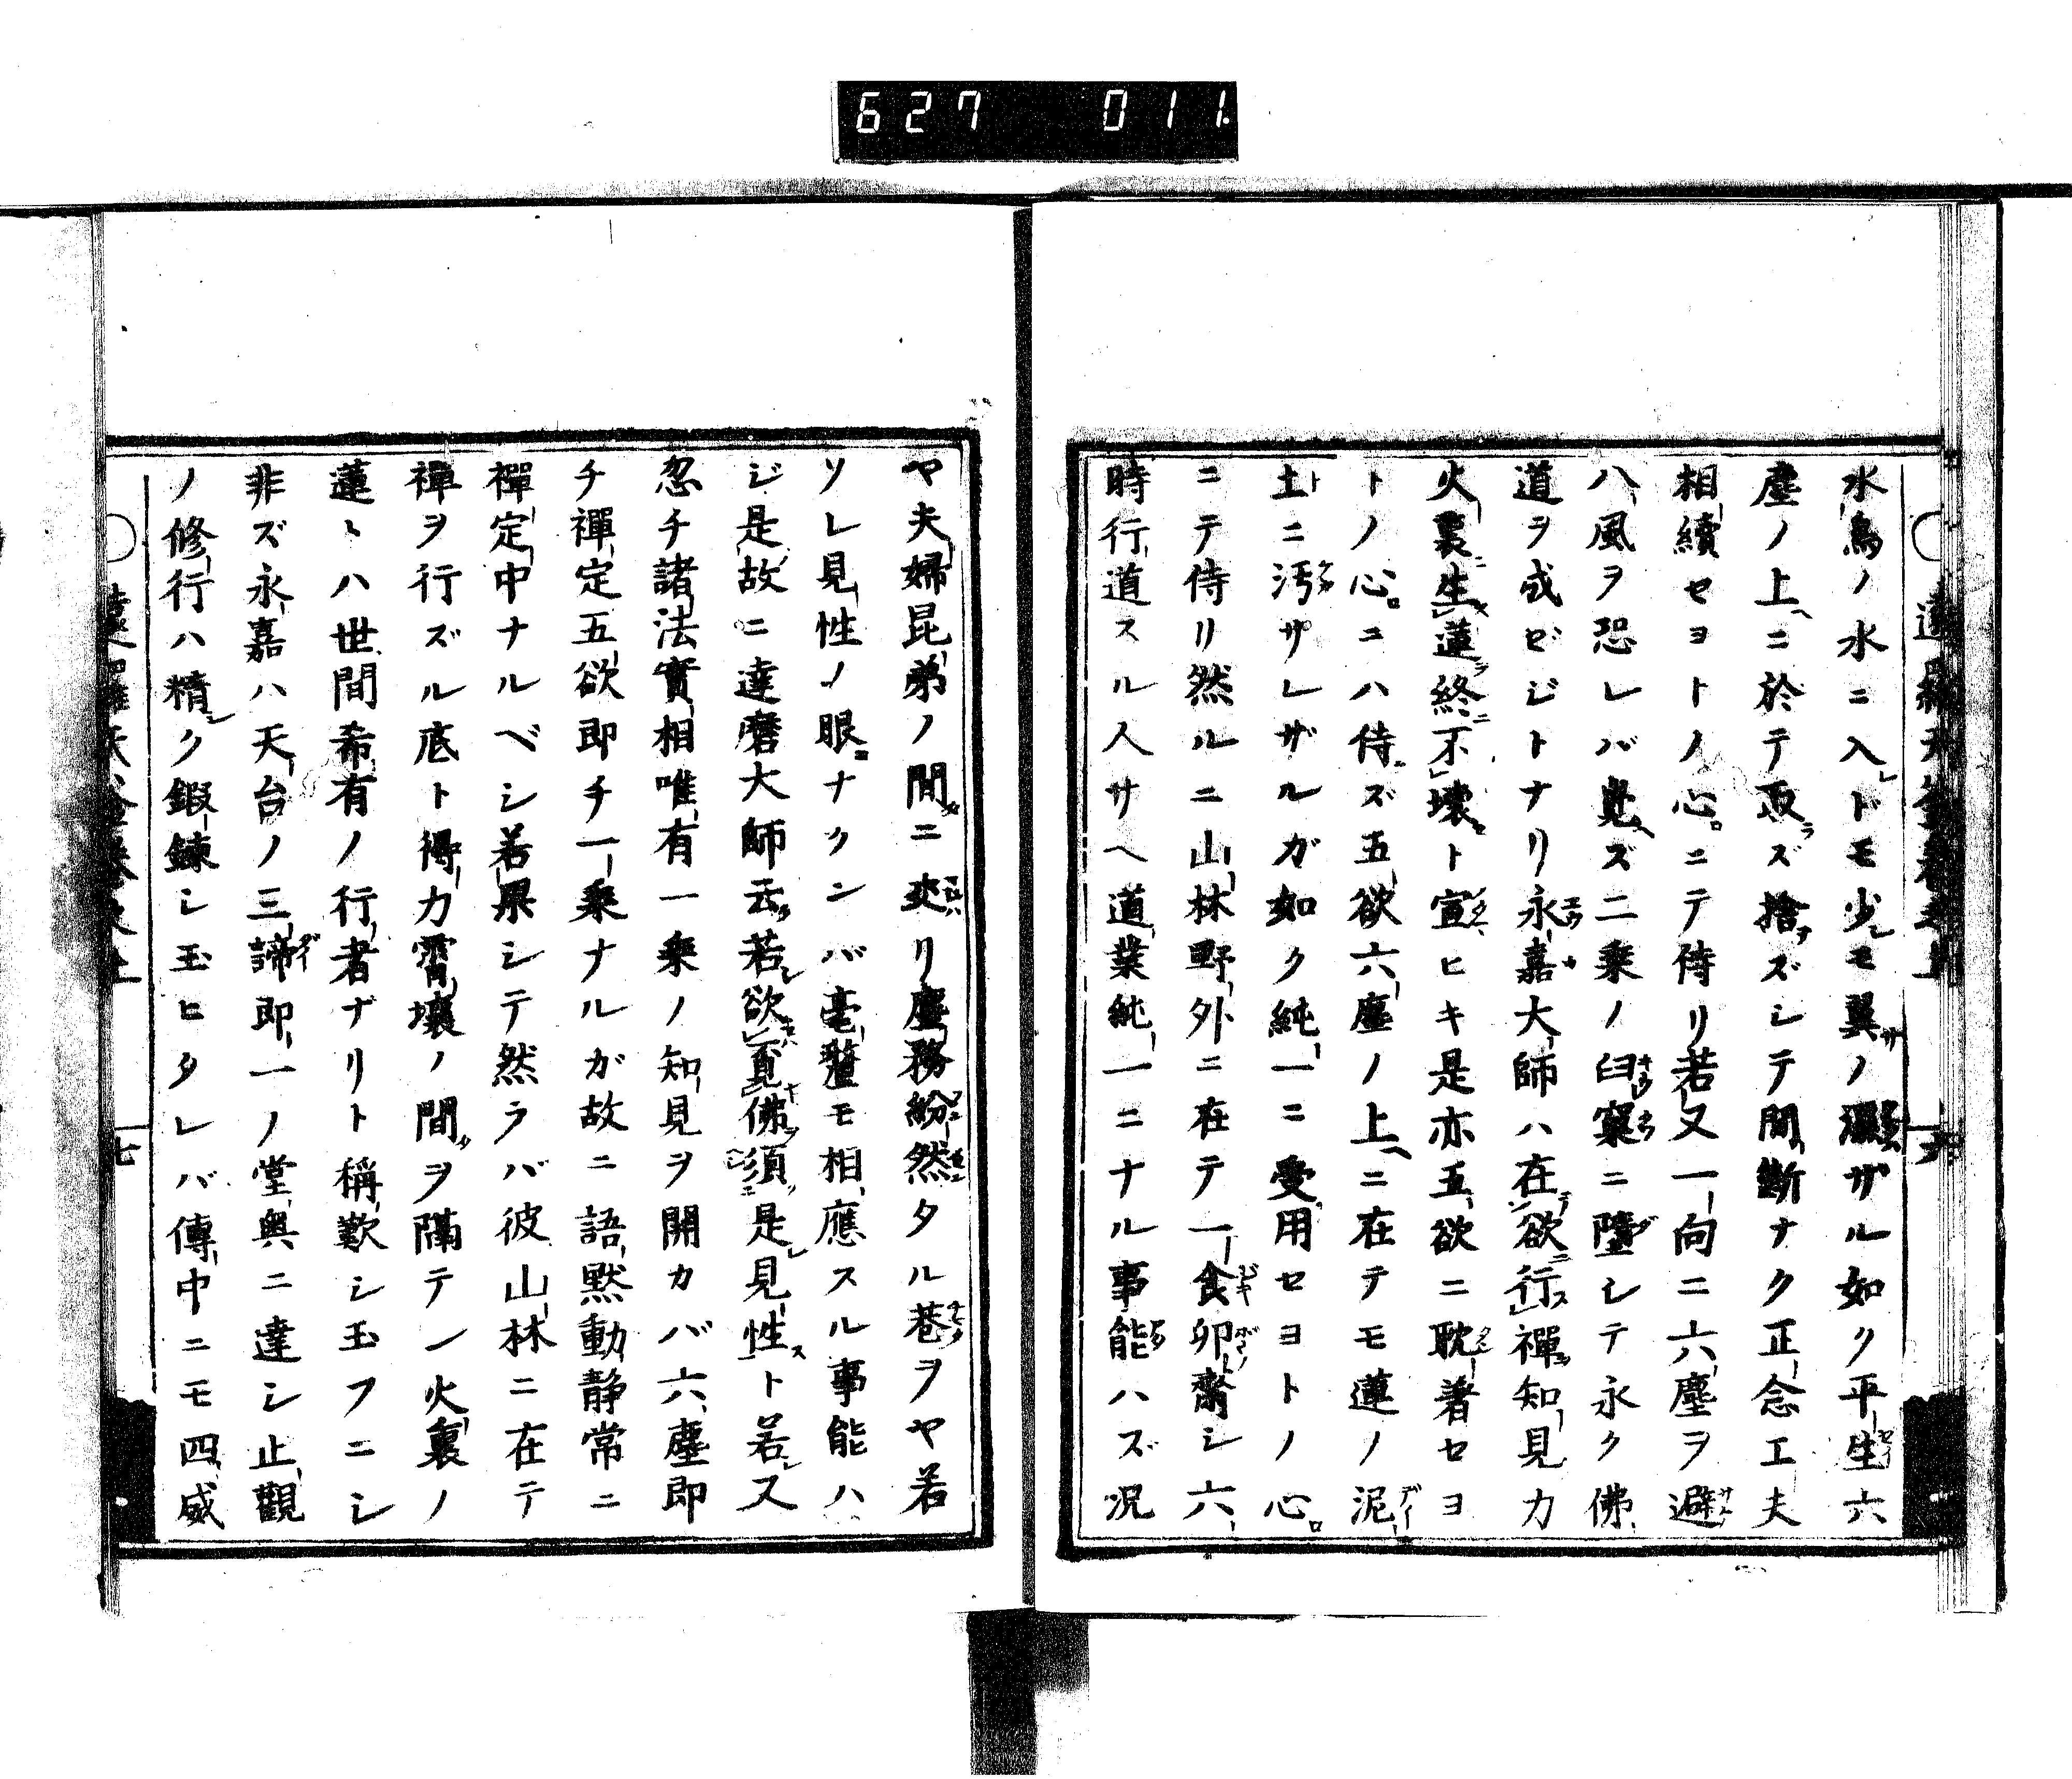 627 011
水鳥ノ水ニ入レドモ少シモ翼ノ濕ザル如ク平生六
塵ノ上ニ於テ取ラズ捨ズシテ間斷ナク正念工夫
相續セヨトノ心ニテ侍リ若又一向ニ六塵ヲ避
八風ヲ恐レバ覺ヘズ二乘ノ臼窠ニ墮シテ永ク佛
道ヲ成ゼジトナリ永嘉大師ハ在欲行禪知見力
火裏生蓮終不壞ト宣ヒキ是亦五欲ニ耽著セヨ
トノ心ニハ侍ズ五欲六塵ノ上ニ在テモ蓮ノ泥
土ニ汚サレザルガ如ク純一ニ受用セヨトノ心
ニテ侍リ然ルニ山林野外ニ在テ一食卯齋シ六
時行道スル人サヘ道業純一ニナル事能ハズ況
ヤ夫婦昆弟ノ間ニ夾リ塵務紛然タル巷ヲヤ若
ソレ見性ノ眼ナクンバ毫釐モ相應スル事能ハ
ジ是故ニ達磨大師云若欲覓佛須是見性ト若又
忽チ諸法實相唯有一乘ノ知見ヲ開カバ六塵即
チ禪定五欲即チ一乘ナルガ故ニ語默動靜常ニ
禪定中ナルベシ若果シテ然ラバ彼山林ニ在テ
禪ヲ行ズル底ト得力霄壤ノ間ヲ隔テン火裏ノ
蓮トハ世間希有ノ行者ナリト稱歎シ玉フニシ
非ズ永嘉ハ天台ノ三諦即一ノ堂奧ニ達シ止觀
ノ修行ハ精シク鍛鍊シ玉ヒタレバ傳中ニモ四威
七